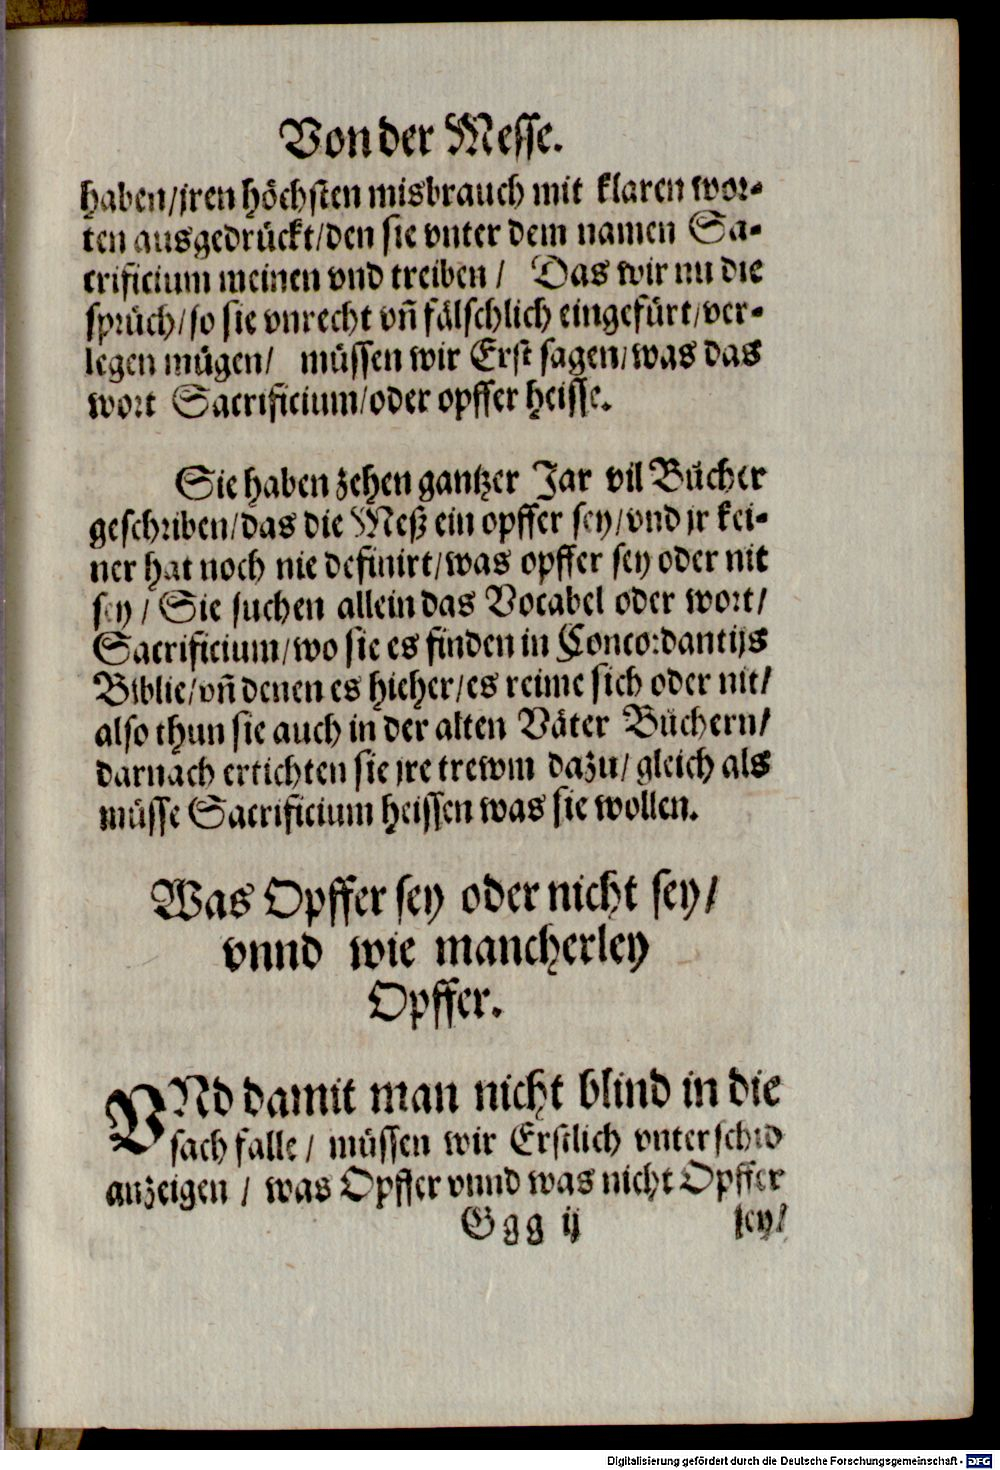 Von der Messe.
haben/jren höchsten misbrauch mit klaren wor-
ten ausgedrückt/den sie vnter dem namen Sa-
crificium meinen vnd treiben / Das wir nu die
sprüch/so sie vnrecht vñ fälschlich eingefürt/ver-
legen mügen/ müssen wir Erst sagen/was das
wort Sacrificium/oder opffer heisse.
Sie haben zehen gantzer Jar vil Bücher
geschriben/das die Meß ein opffer sey/vnd jr kei-
ner hat noch nie definirt/was opffer sey oder nit
sey / Sie suchen allein das Vocabel oder wort/
Sacrificium/wo sie es finden in Concordantijs
Biblie/vñ denen es hieher/es reime sich oder nit/
also thun sie auch in der alten Väter Büchern/
darnach ertichten sie jre trewm dazu/ gleich als
müsse Sacrificium heissen was sie wollen.
Was Opffer sey oder nicht sey/
vnnd wie mancherley
Opffer.
VNd damit man nicht blind in die
sach falle / müssen wir Erstlich vnterschid
anzeigen / was Opffer vnnd was nicht Opffer
Ggg ij sey/
Digitalisierung gefördert durch die Deutsche Forschungsgemeinschaft - DFG